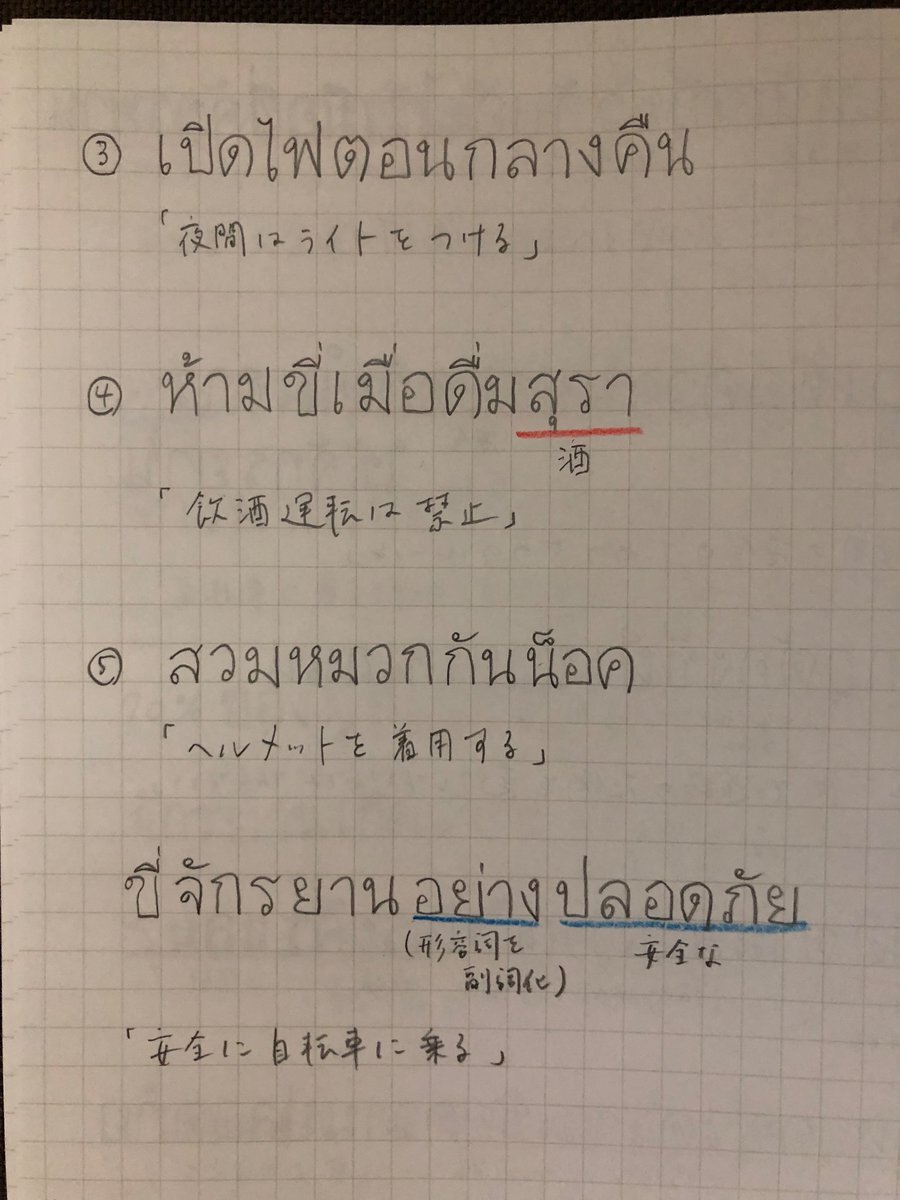 ③ เปิดไฟตอนกลางคืน
「夜間はライトをつける」
④ ห้ามขี่เมื่อดื่มสุรา
酒
「飲酒運転は禁止」
⑤ สวมหมวกกันน็อค
「ヘルメットを着用する」
ขี่จักรยานอย่างปลอดภัย
(形容詞を 安全な
副詞化)
「安全に自転車に乗る」